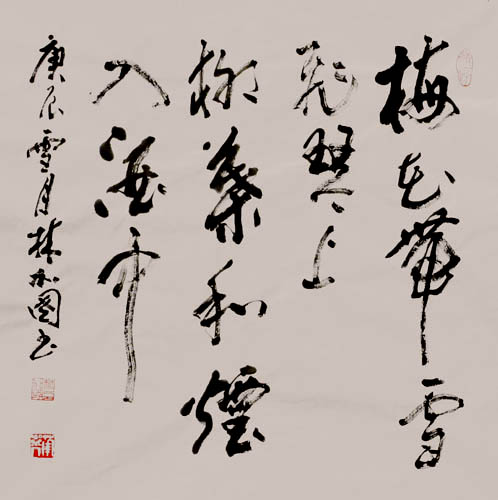 梅花帶雪
飛琴上
柳葉和煙
入酒中
庚辰雪月林书